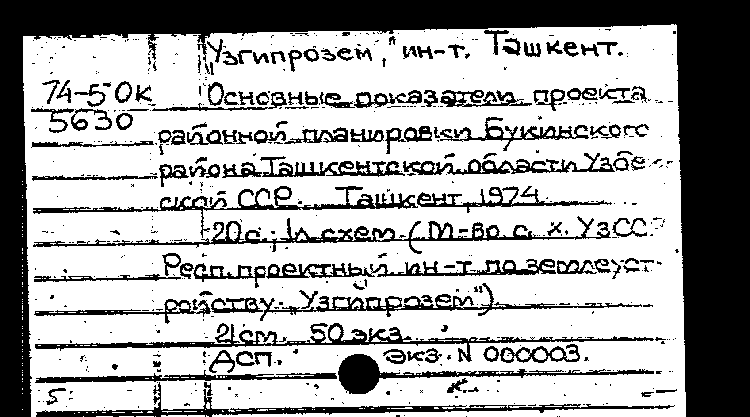 „Узгипрозем," ин-т. Ташкент.
74-5 0к Основные показатели проекта
5630 районной планировки Букинского
района Ташкентской области Узбе-
ской ССР. Ташкент, 1974.
20с.; 1л схем. (М-во с. х. УзССР
Респ. проектный ин-т по землеуст-
ройству „Узгипрозем")
21см. 50 экз.
ДСП. Экз. N 000003.
5